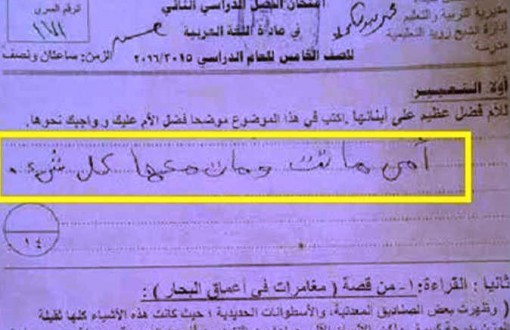 امتحان الفصل الدراسي الثاني
في مادة اللغة العربية
للصف الخامس للعام الدراسي ٢٠١٦/٢٠١٥
الزمن: ساعتان ونصف
مديرية التربية والتعليم
إدارة الشيخ زويد التعليمية
مدرسة
الرقم السري
أولا: التعبير
للأم فضل عظيم على أبنائها. اكتب في هذا الموضوع موضحا فضل الأم عليك وواجبك نحوها.
أمى ماتت ومات معها كل شىء.
١٤
ثانيا: القراءة: ١- من قصة ( مغامرات في أعماق البحار ) :
( وظهرت بعض الصناديق المعدنية، والأسطوانات الحديدية ؛ حيث كانت هذه الأشياء كلها ثقيلة